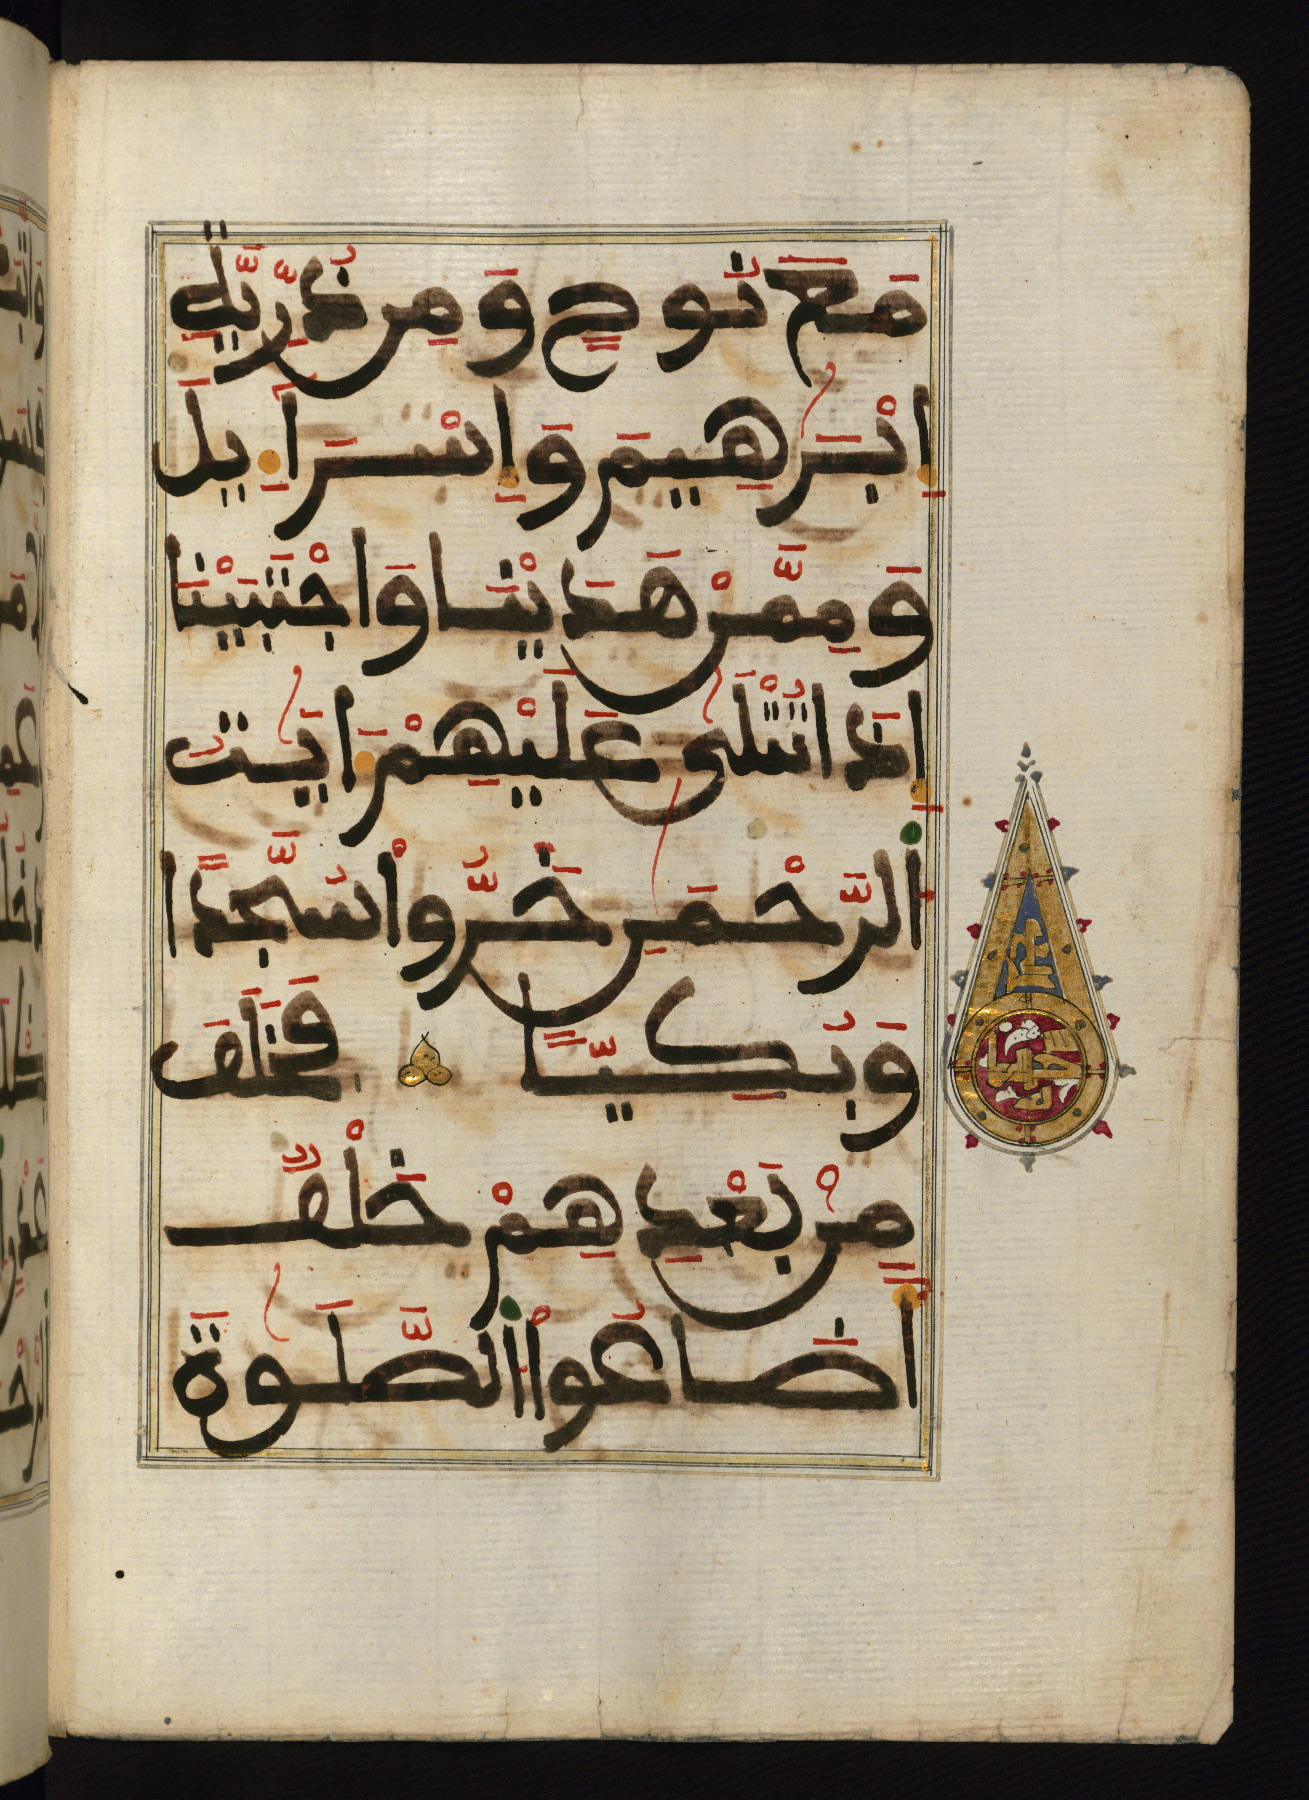 مَعَ نُوحٍ وَمِن ذُرِّيَّةِ
إِبْرَٰهِيمَ وَإِسْرَآءِيلَ
وَمِمَّنْ هَدَيْنَا وَاجْتَبَيْنَا
إِذَا تُتْلَىٰ عَلَيْهِمْ ءَايَٰتُ
اَ۬لرَّحْمَٰنِ خَرُّواْ سُجَّدًا
وَبُكِيًّا فَخَلَفَ
مِنۢ بَعْدِهِمْ خَلْفٌ
أَضَاعُواْ اُ۬لصَّلَوٰةَ